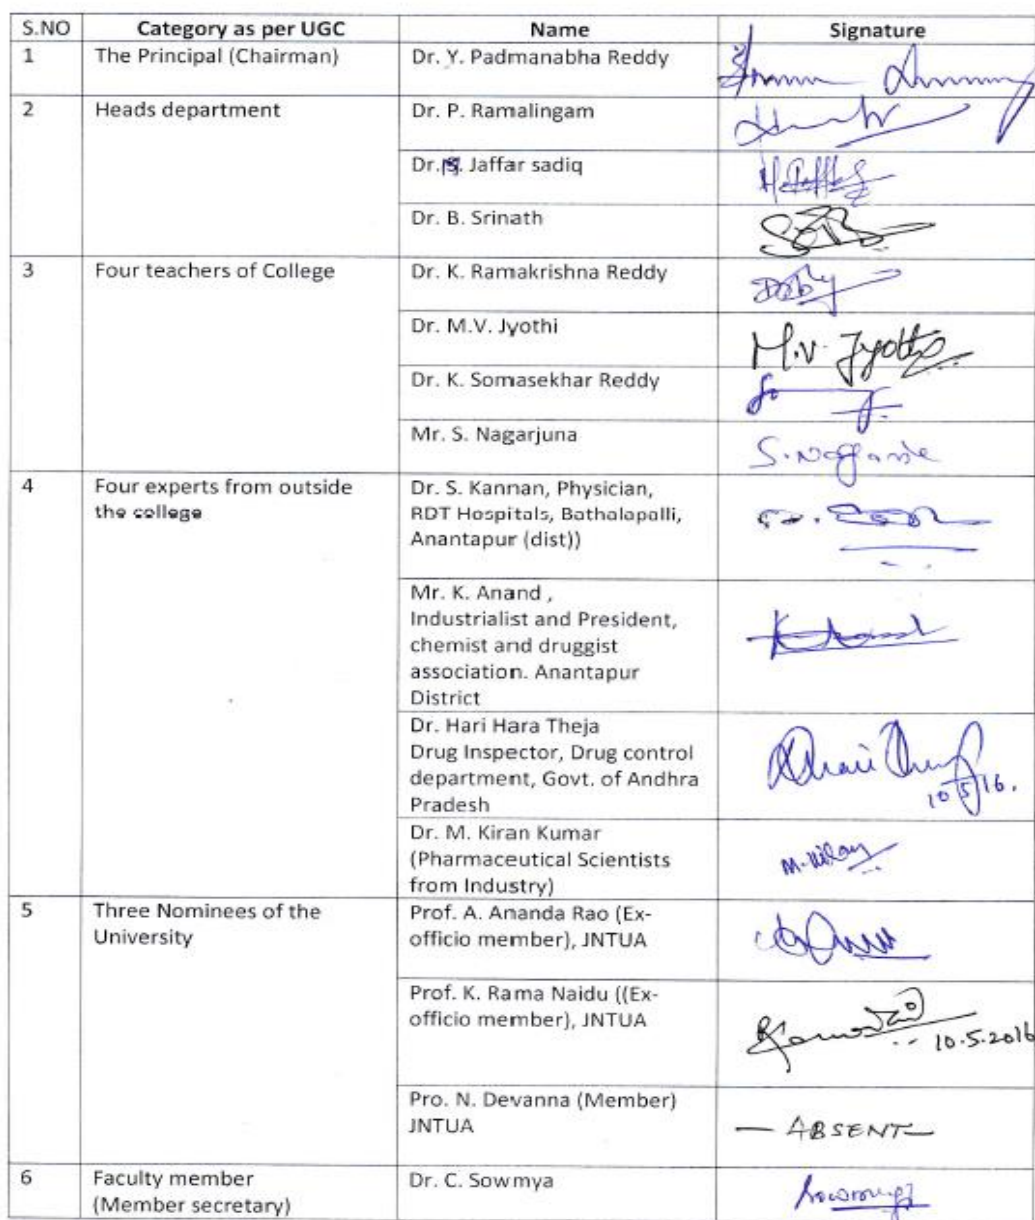 S.NO Category as per UGC Name Signature
1 The Principal (Chairman) Dr. Y. Padmanabha Reddy
2 Heads department Dr. P. Ramalingam
Dr. Jaffar sadiq
Dr. B. Srinath
3 Four teachers of College Dr. K. Ramakrishna Reddy
Dr. M.V. Jyothi M.V. Jyothi
Dr. K. Somasekhar Reddy
Mr. S. Nagarjuna
4 Four experts from outside Dr. S. Kannan, Physician,
the college RDT Hospitals, Bathalapalli,
Anantapur (dist))
Mr. K. Anand ,
Industrialist and President,
chemist and druggist
association. Anantapur
District
Dr. Hari Hara Theja
Drug Inspector, Drug control
department, Govt. of Andhra 10 5 16.
Pradesh
Dr. M. Kiran Kumar
(Pharmaceutical Scientists
from Industry)
5 Three Nominees of the Prof. A. Ananda Rao (Ex-
University officio member), JNTUA
Prof. K. Rama Naidu ((Ex-
officio member), JNTUA 10.5.2016
Pro. N. Devanna (Member)
JNTUA — ABSENT —
6 Faculty member Dr. C. Sowmya
(Member secretary)